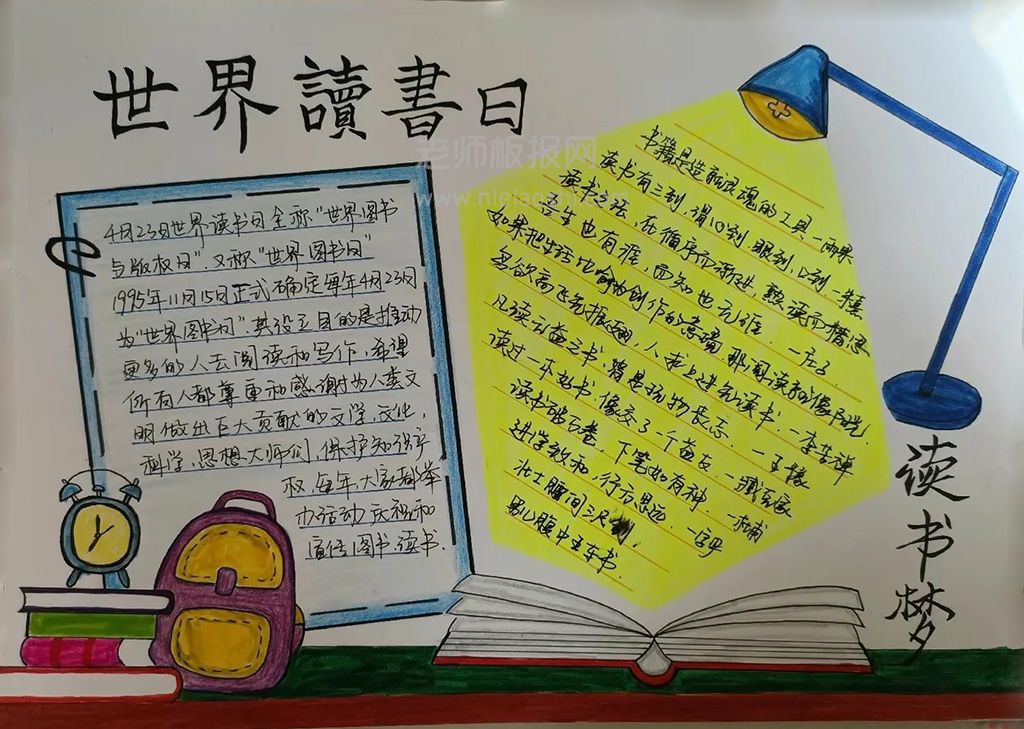 世界讀書日
老师板报网
www.nielaoshi.com
4月23日世界读书日全称"世界图书
与版权日",又称"世界图书日"
1995年11月15日正式确定每年4月23日
为"世界图书日".其设立目的是推动
更多的人去阅读和写作,希望
所有人都尊重和感谢为人类文
明做出巨大贡献的文学,文化,
科学,思想大师们,保护知识产
权,每年,大家都举
办活动庆祝和
宣传图书,读书.
书籍是造就灵魂的工具—雨果
读书有三到,谓心到,眼到,口到—朱熹
读书之法,在循序而渐进,熟读而精思
吾生也有涯,而知也无涯.—庄子
如果把生活比喻为创作的意境,那阅读就像阳光.
鸟欲高飞先振翅,人求上进先读书.—李苦禅
凡读无益之书,皆是玩物丧志.—王豫
读过一本好书,像交了一个益友.—臧克家
读书破万卷,下笔如有神.—杜甫
进学致和,行方思远.—字
壮士腰间三尺剑,
男儿腹中五车书.
读书梦